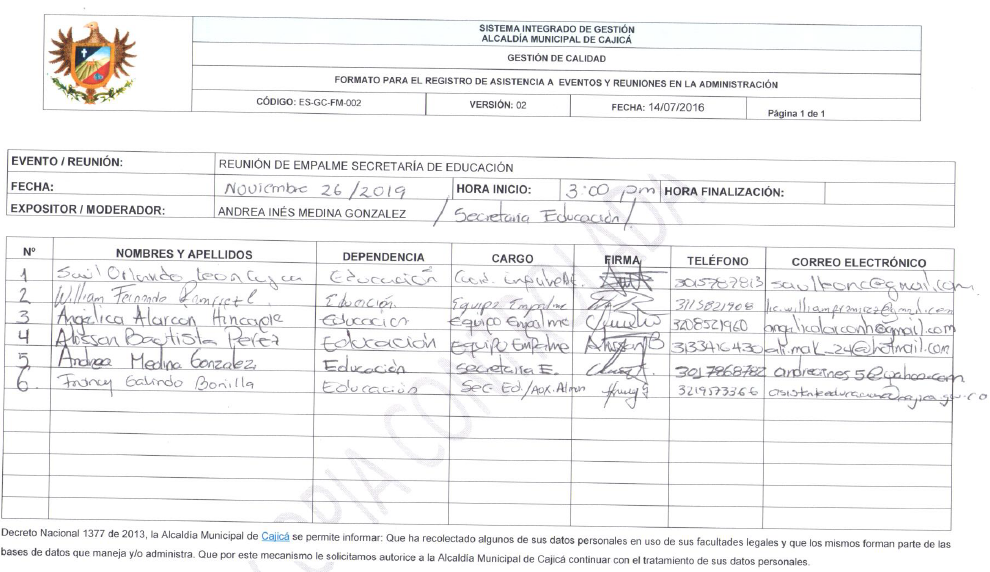 SISTEMA INTEGRADO DE GESTIÓN
ALCALDÍA MUNICIPAL DE CAJICÁ
GESTIÓN DE CALIDAD
FORMATO PARA EL REGISTRO DE ASISTENCIA A EVENTOS Y REUNIONES EN LA ADMINISTRACIÓN
CÓDIGO: ES-GC-FM-002 VERSIÓN: 02 FECHA: 14/07/2016 Página 1 de 1
EVENTO / REUNIÓN: REUNIÓN DE EMPALME SECRETARÍA DE EDUCACIÓN
FECHA: Noviembre 26/2019 HORA INICIO: 3:00 pm HORA FINALIZACIÓN:
EXPOSITOR / MODERADOR: ANDREA INÉS MEDINA GONZALEZ / Secretaria Educación /
Nº NOMBRES Y APELLIDOS DEPENDENCIA CARGO FIRMA TELÉFONO CORREO ELECTRÓNICO
1 Saúl Orlando Leon Educación 3015787813 saulleonc@gmail.com
2 William Fernando Educación Equipo Empalme 3115821908
3 Angélica Alarcón Hincapie Educacion equipo Empalme 3208521960 angelicalarconh@gmail.com
4 Alisson Bautista Perez Educación Equipo Empalme 3133416430 ali.mak_24@hotmail.com
5 Andrea Medina Gonzalez Educación Secretaria E. 3017868782 andreaines5@yahoo.com
6. Francy Galindo Bonilla Educación Sec Ed/ 3219573366
COPIA CONTROLADA
Decreto Nacional 1377 de 2013, la Alcaldía Municipal de Cajicá se permite informar: Que ha recolectado algunos de sus datos personales en uso de sus facultades legales y que los mismos forman parte de las
bases de datos que maneja y/o administra. Que por este mecanismo le solicitamos autorice a la Alcaldía Municipal de Cajicá continuar con el tratamiento de sus datos personales.